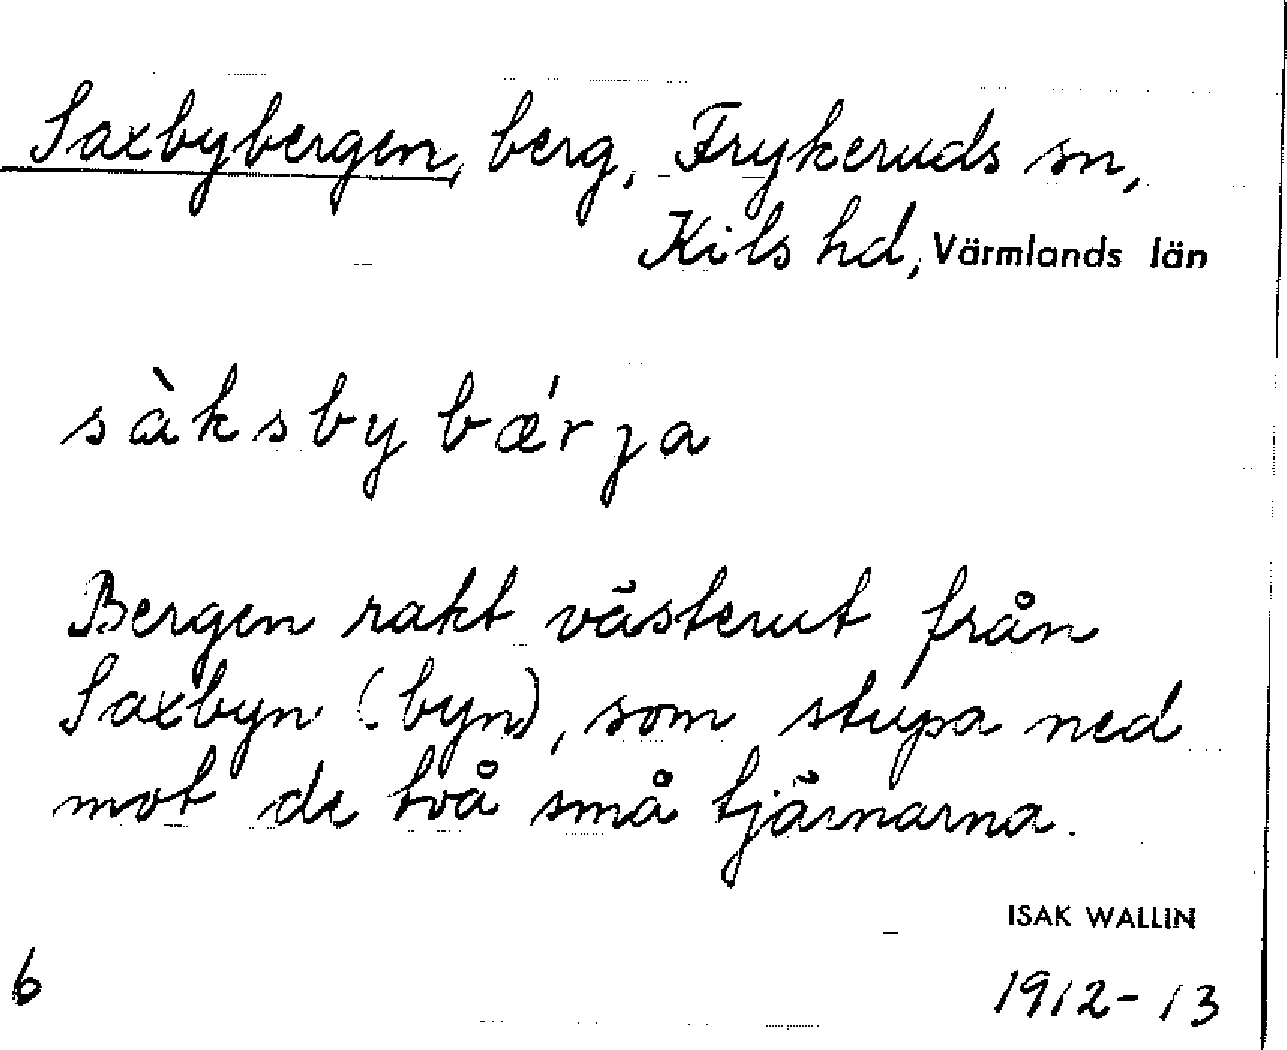 Saxbybergen, berg, Frykeruds sn,
Kils hd, Värmlands län
sàksbybǽrja
Bergen rakt västerut från
Saxbyn (byn), som stupa ned
mot de två små tjärnarna.
ISAK WALLIN
6
1912-13